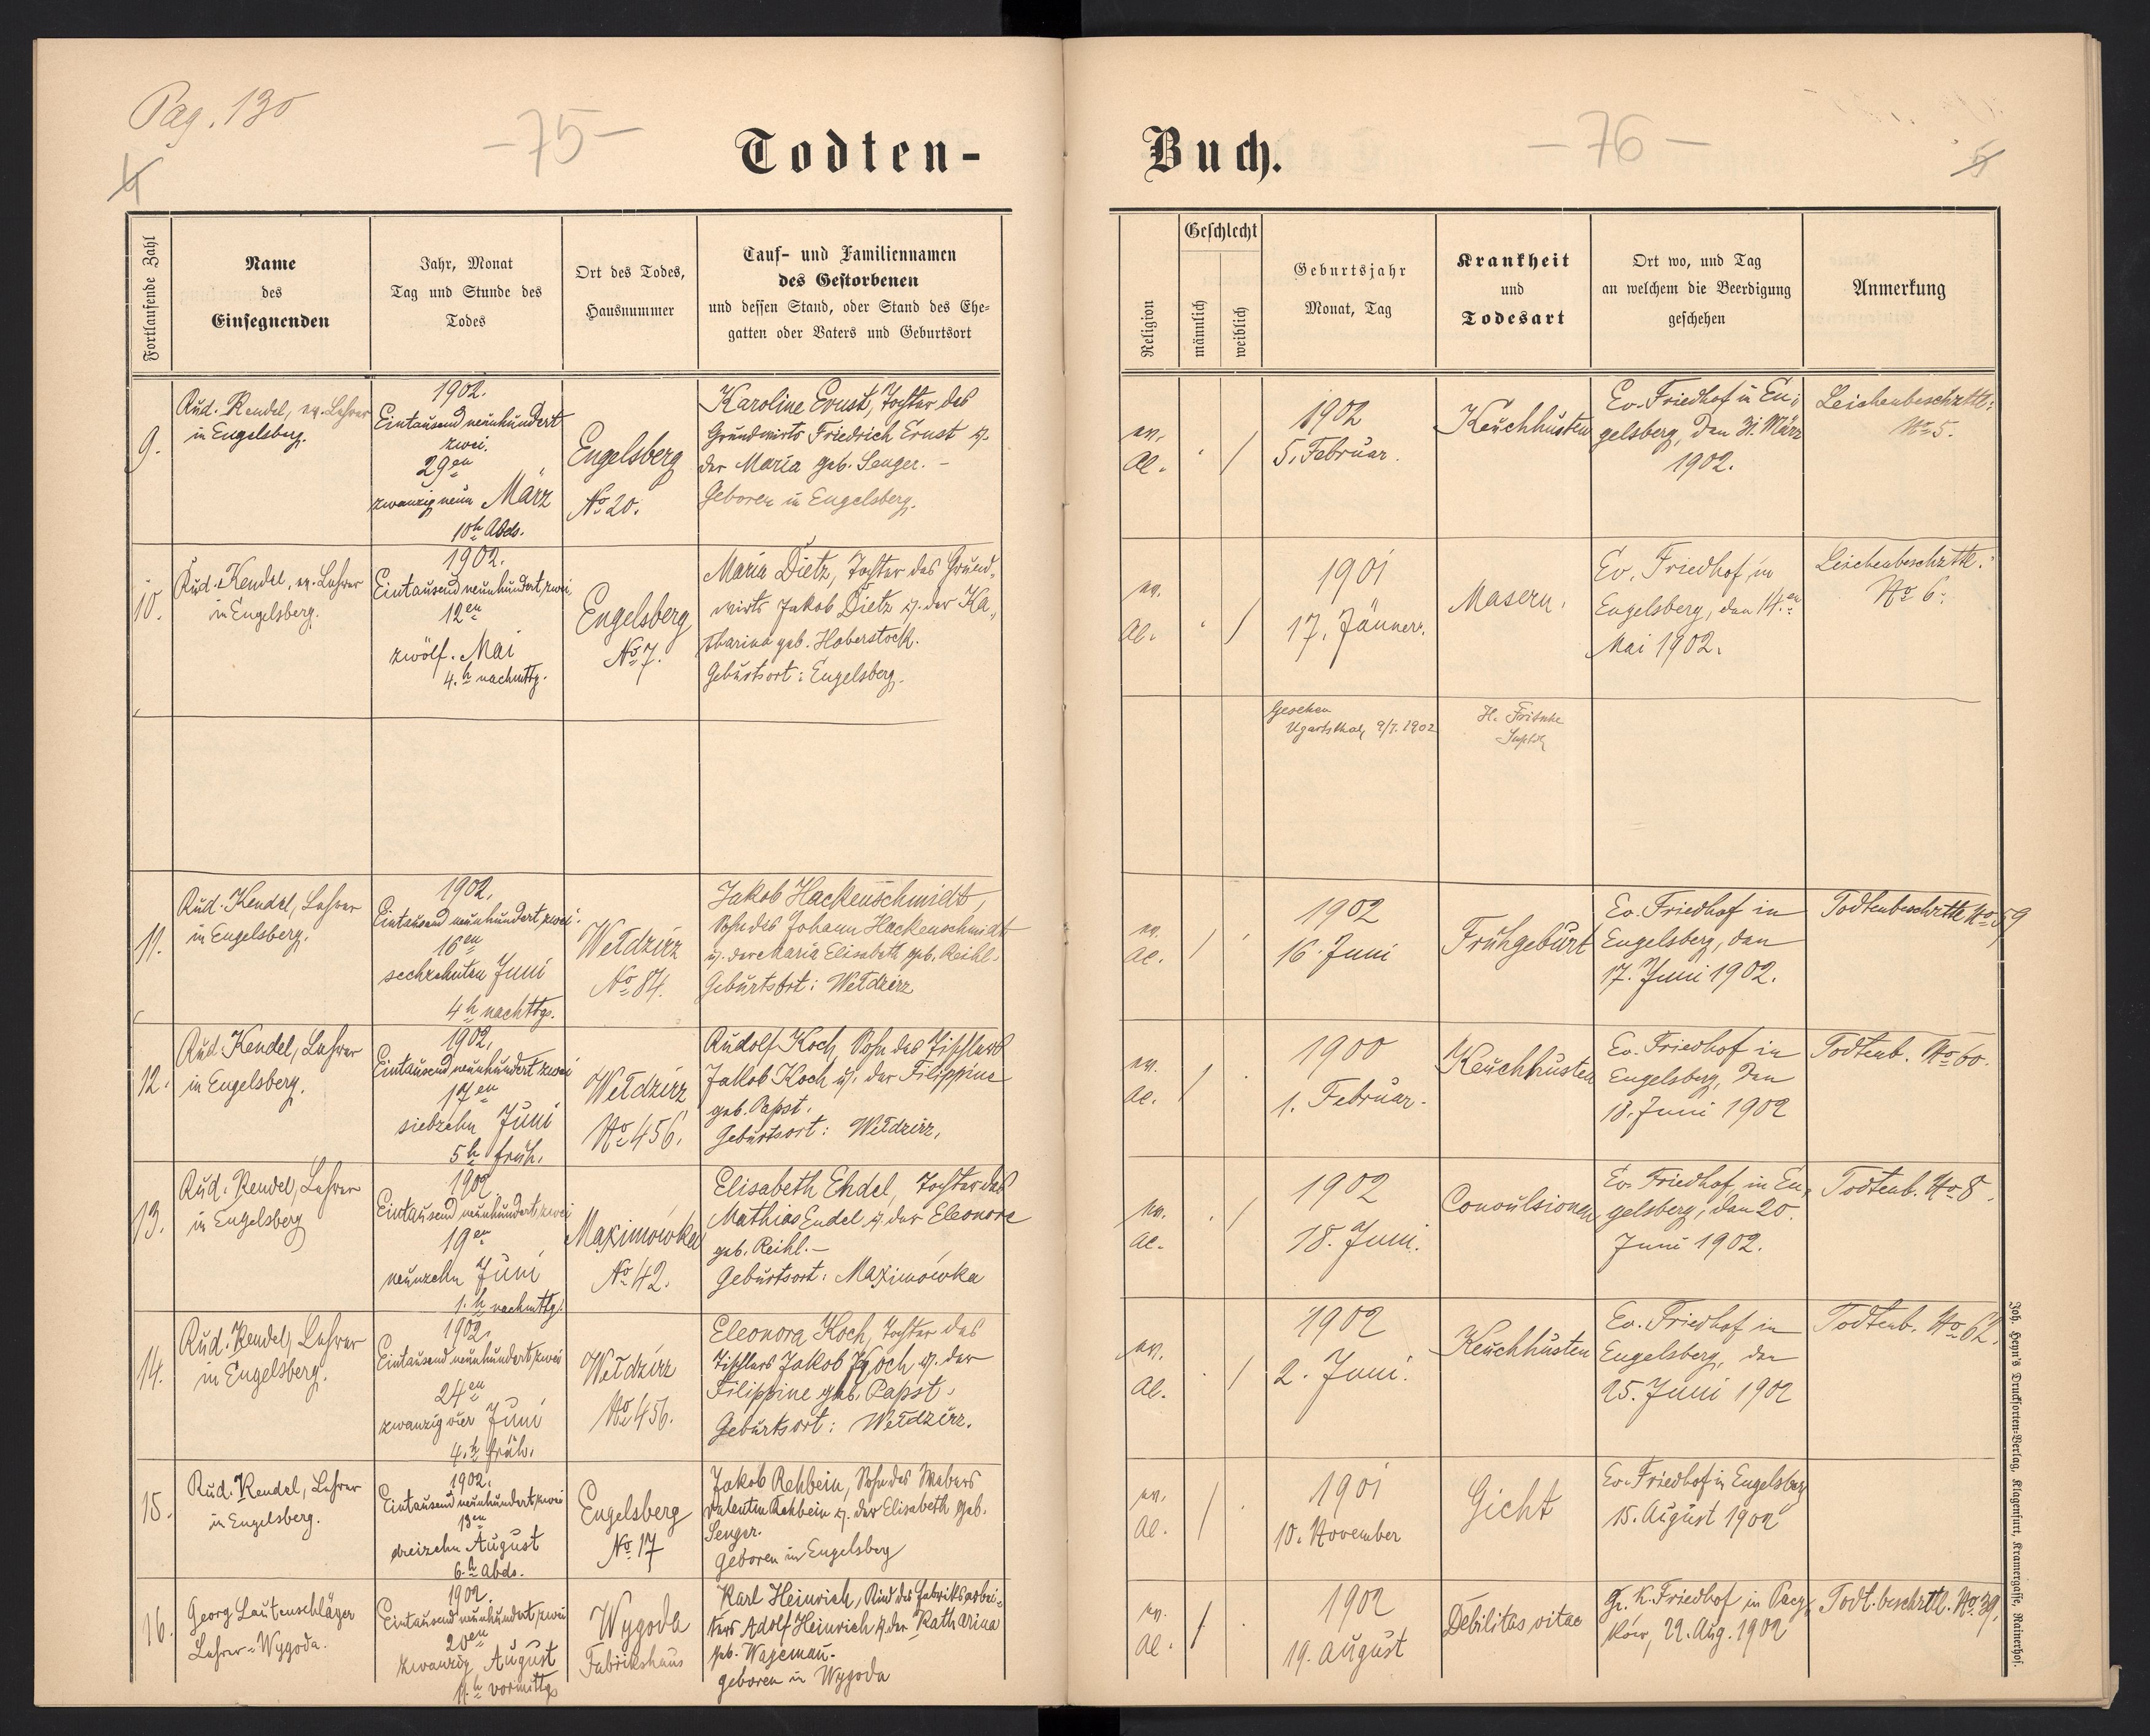 Pag. 130
-75-
4
Todten-
Fortlaufende Zahl
Name
des
Einsegnenden
Jahr, Monat
Tag und Stunde des
Todes
Ort des Todes,
Hausnummer
Tauf- und Familiennamen
des Gestorbenen
und dessen Stand, oder Stand des Ehe-
gatten oder Vaters und Geburtsort
9.
Rud. Kendel, ev. Lehrer
in Engelsberg.
1902.
Eintausend neunhundert
zwei.
29en
zwanzig neun März
10h Abds.
Engelsberg
No 20.
Karoline Ernst, Tochter des
Grundwirts Friedrich Ernst u.
der Maria geb. Senger. -
Geboren in Engelsberg.
10.
Rud. Kendel, ev. Lehrer
in Engelsberg.
1902.
Eintausend neunhundert zwei
12en
zwölf. Mai
4.h nachmttg.
Engelsberg
No 7.
Maria Dietz, Tochter des Grund-
wirts Jakob Dietz u. der Ka-
tharina geb. Haberstock.
Geburtsort: Engelsberg.
11.
Rud. Kendel, Lehrer
in Engelsberg.
1902.
Eintausend neunhundert zwei
16en
sechzehnten Juni
4h nachttgs.
Wełdzirz
No 84.
Jakob Hackenschmidt,
Sohn des Johann Hackenschmidt
u. der Maria Elisabeth geb. Reihl.
Geburtsort: Wełdzirz
12.
Rud. Kendel, Lehrer
in Engelsberg.
1902.
Eintausend neunhundert zwei
17en
siebzehn Juni
5h früh.
Wełdzirz
No 456.
Rudolf Koch, Sohn des Tischlers
Jakob Koch u. der Filippine
geb. Papst.
Geburtsort: Wełdzirz.
13.
Rud. Kendel, Lehrer
in Engelsberg
1902
Eintausend neunhundert zwei
19en
neunzehn Juni
1.h nachmttg.
Maximówka
No 42.
Elisabeth Endel, Tochter des
Mathias Endel u. der Eleonore
geb. Reihl. -
Geburtsort: Maximówka
14.
Rud. Kendel, Lehrer
in Engelsberg.
1902.
Eintausend neunhundert zwei
24en
zwanzig vier Juni
4.h früh.
Wełdzirz
No 456.
Eleonora Koch, Tochter des
Tischlers Jakob Koch u. der
Filippine geb. Papst.
Geburtsort: Wełdzirz.
15.
Rud. Kendel, Lehrer
in Engelsberg.
1902.
Eintausend neunhundert zwei
13en
dreizehn August
6.h abds.
Engelsberg
No 17
Jakob Rehbein, Sohn des Webers
Valentin Rehbein u. der Elisabeth geb.
Senger.
Geboren in Engelsberg
16.
Georg Lautenschläger
Lehrer - Wygoda.
1902.
Eintausend neunhundert zwei
20en
zwanzig August
11.h vormittgs
Wygoda
Fabrikshaus
Karl Heinrich, Kind des Fabriksarbei-
ters Adolf Heinrich u. der Katharina
geb. Wageman.
geboren in Wygoda
Buch.
-76-
5
Religion
Geschlecht
männlich
weiblich
Geburtsjahr
Monat, Tag
Krankheit
und
Todesart
Ort wo, und Tag
an welchem die Beerdigung
geschehen
Anmerkung
ev.
Al.
1902
5. Februar.
Keuchhusten
Ev. Friedhof in En-
gelsberg, den 31. März
1902.
Leichenbeschzttl.
No 5.
ev.
Al.
1901
17. Jänner.
Masern.
Ev. Friedhof in
Engelsberg, den 14.en
Mai 1902.
Leichenbeschzttl.
No 6.
Gesehen
Ugartsthal, 9/7. 1902
H. Fritsche
ev.
Al.
1902
16. Juni
Frühgeburt
Ev. Friedhof in
Engelsberg, den
17. Juni 1902.
Todtenbeschzttl No 59
ev.
Al.
1900
1. Februar.
Keuchhusten
Ev. Friedhof in
Engelsberg, den
18. Juni 1902
Todtenb. No 60.
ev.
Al.
1902
18. Juni.
Convulsionen
Ev. Friedhof in En-
gelsberg, den 20.
Juni 1902.
Todtenb. No 8.
ev.
Al.
1902
2. Juni.
Keuchhusten
Ev. Friedhof in
Engelsberg, den
25. Juni 1902
Todtenb. No 62.
ev.
Al.
1901
10. November
Gicht
Ev. Friedhof in Engelsberg
15. August 1902
ev.
Al.
1902
19. August
Debilitas vitae
Gr. K. Friedhof in Pacy-
ków, 22. Aug. 1902
Todt.beschzttl. No 39.
Joh. Heyn's Drucksorten-Verlag, Klagenfurt, Kramergasse, Rainerhof.